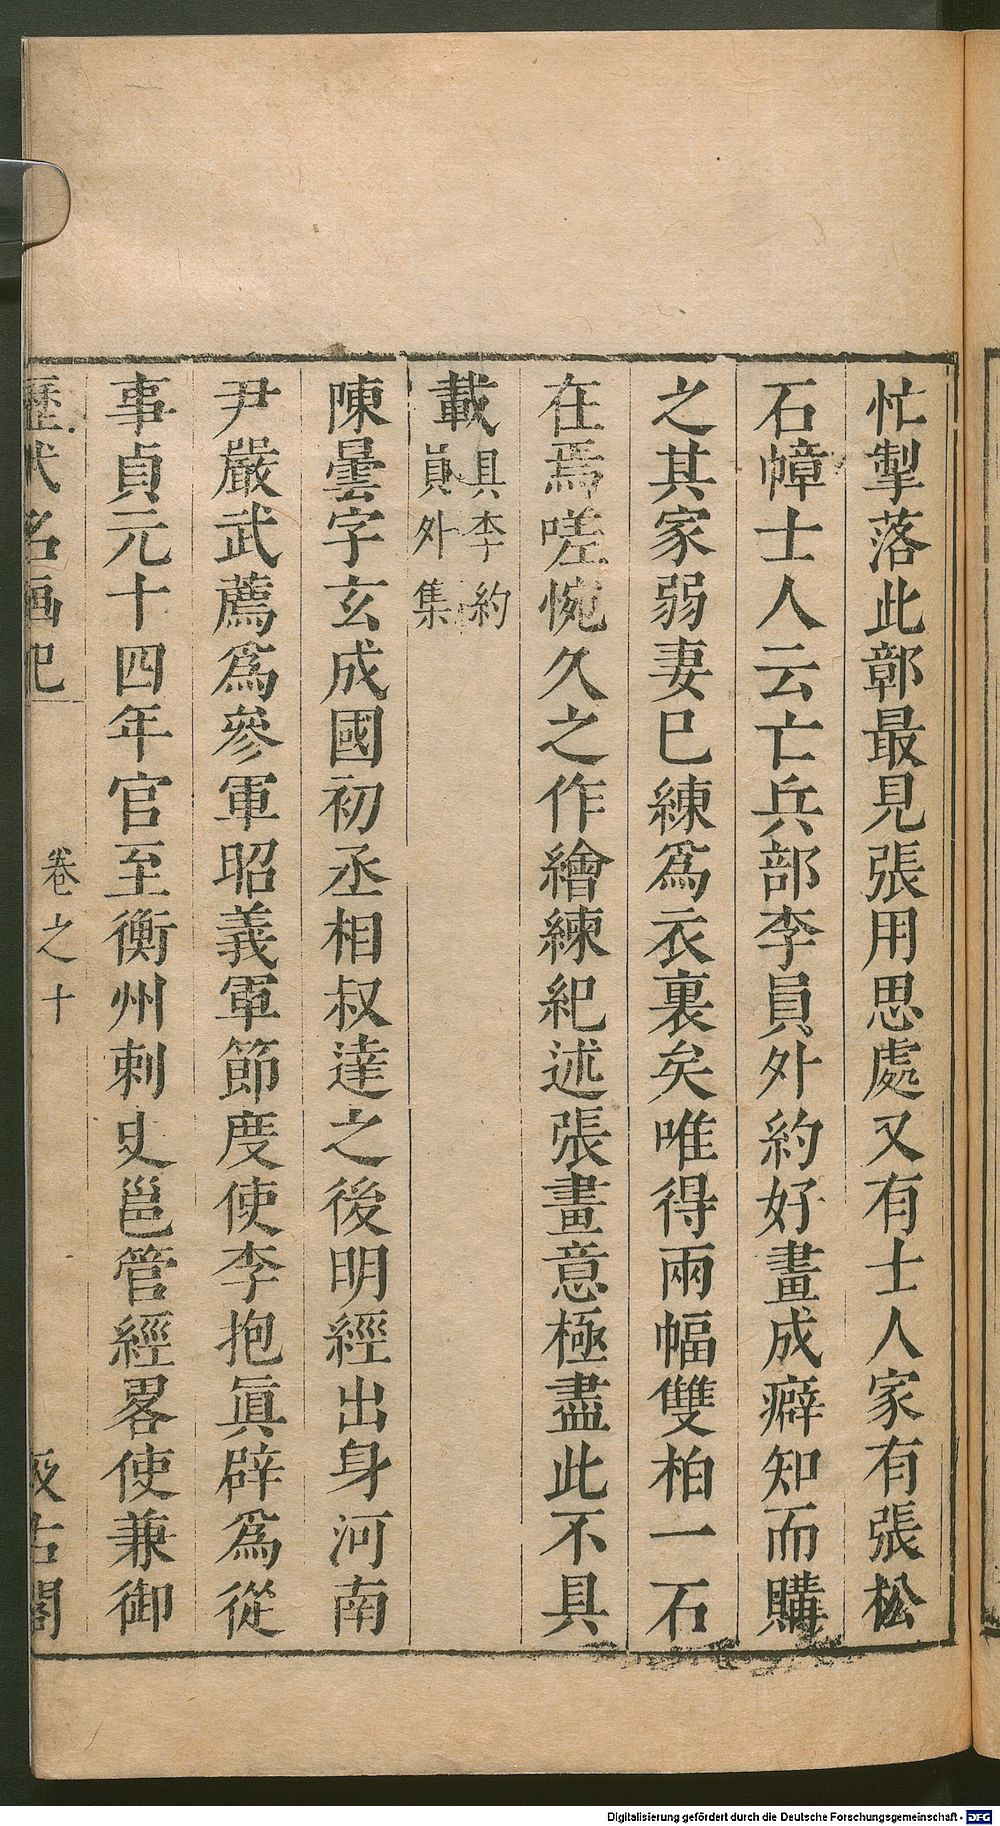 忙掣落此鄣最見張用思處又有士人家有張松
石幛士人云亡兵部李員外約好畫成癖知而購
之其家弱妻巳練爲衣裏矣唯得兩幅雙柏一石
在焉嗟惋久之作繪練紀述張畫意極盡此不具
載具李約
員外集
陳曇字玄成國初丞相叔達之後明經出身河南
尹嚴武薦爲參軍昭義軍節度使李抱眞辟爲從
事貞元十四年官至衡州刺史邕管經畧使兼御
歷代名画記 卷之十 汲古閣
Digitalisierung gefördert durch die Deutsche Forschungsgemeinschaft - DFG